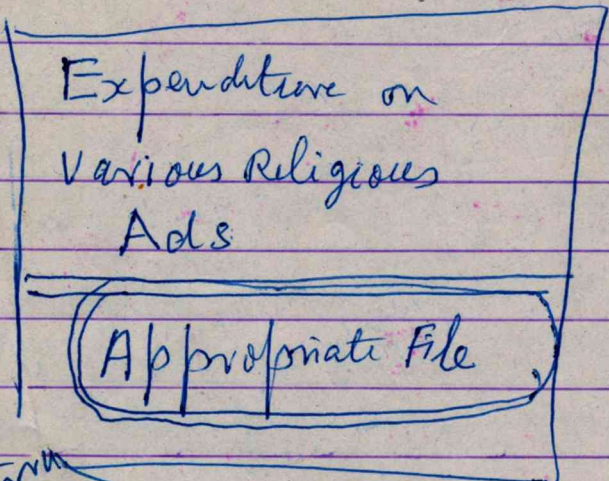 Expenditure on
Various Religious
Ads
Appropriate File